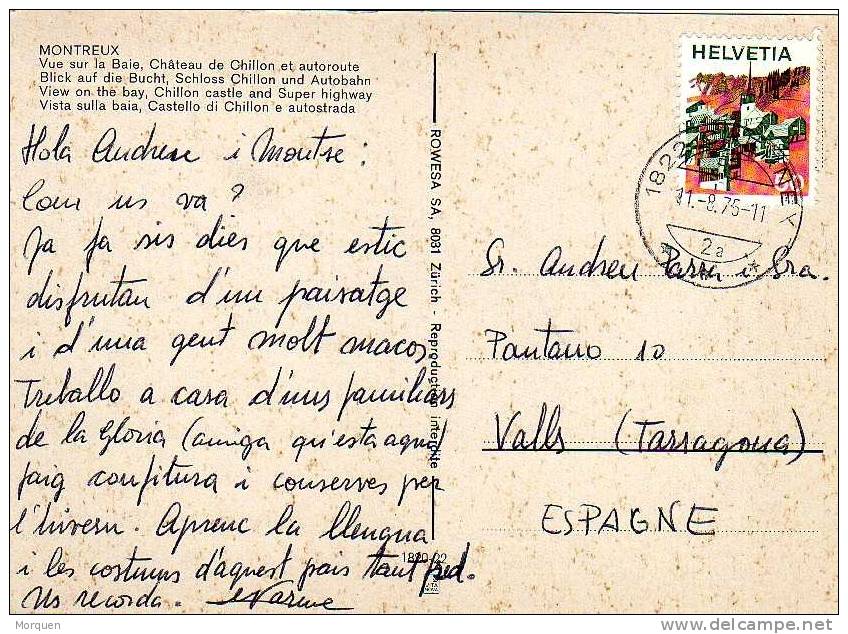 MONTREUX
Vue sur la Baie, Château de Chillon et autoroute
Blick auf die Bucht, Schloss Chillon und Autobahn
View on the bay, Chillon castle and Super highway
Vista sulla baia, Castello di Chillon e autostrada
Hola Andreu i Montse:
Com us va?
Ja fa sis dies que estic
disfrutan d'un paisatge
i d'una gent molt macos
Treballo a casa d'uns familiars
de la Gloria (amiga qu'esta aquí)
faig confitura i conserves per
l'hivern. Aprenc la llengua
i les costums d'aquest pais tant
Us recorda.
ROWESA SA, 8031 Zürich - Reproduction interdite
1820-22
HELVETIA
1822
11.-8.75-11
2a
Sr. Andreu Parra i Sra.
Pantano 10
Valls (Tarragona)
ESPAGNE
Morquen
delcampe.net